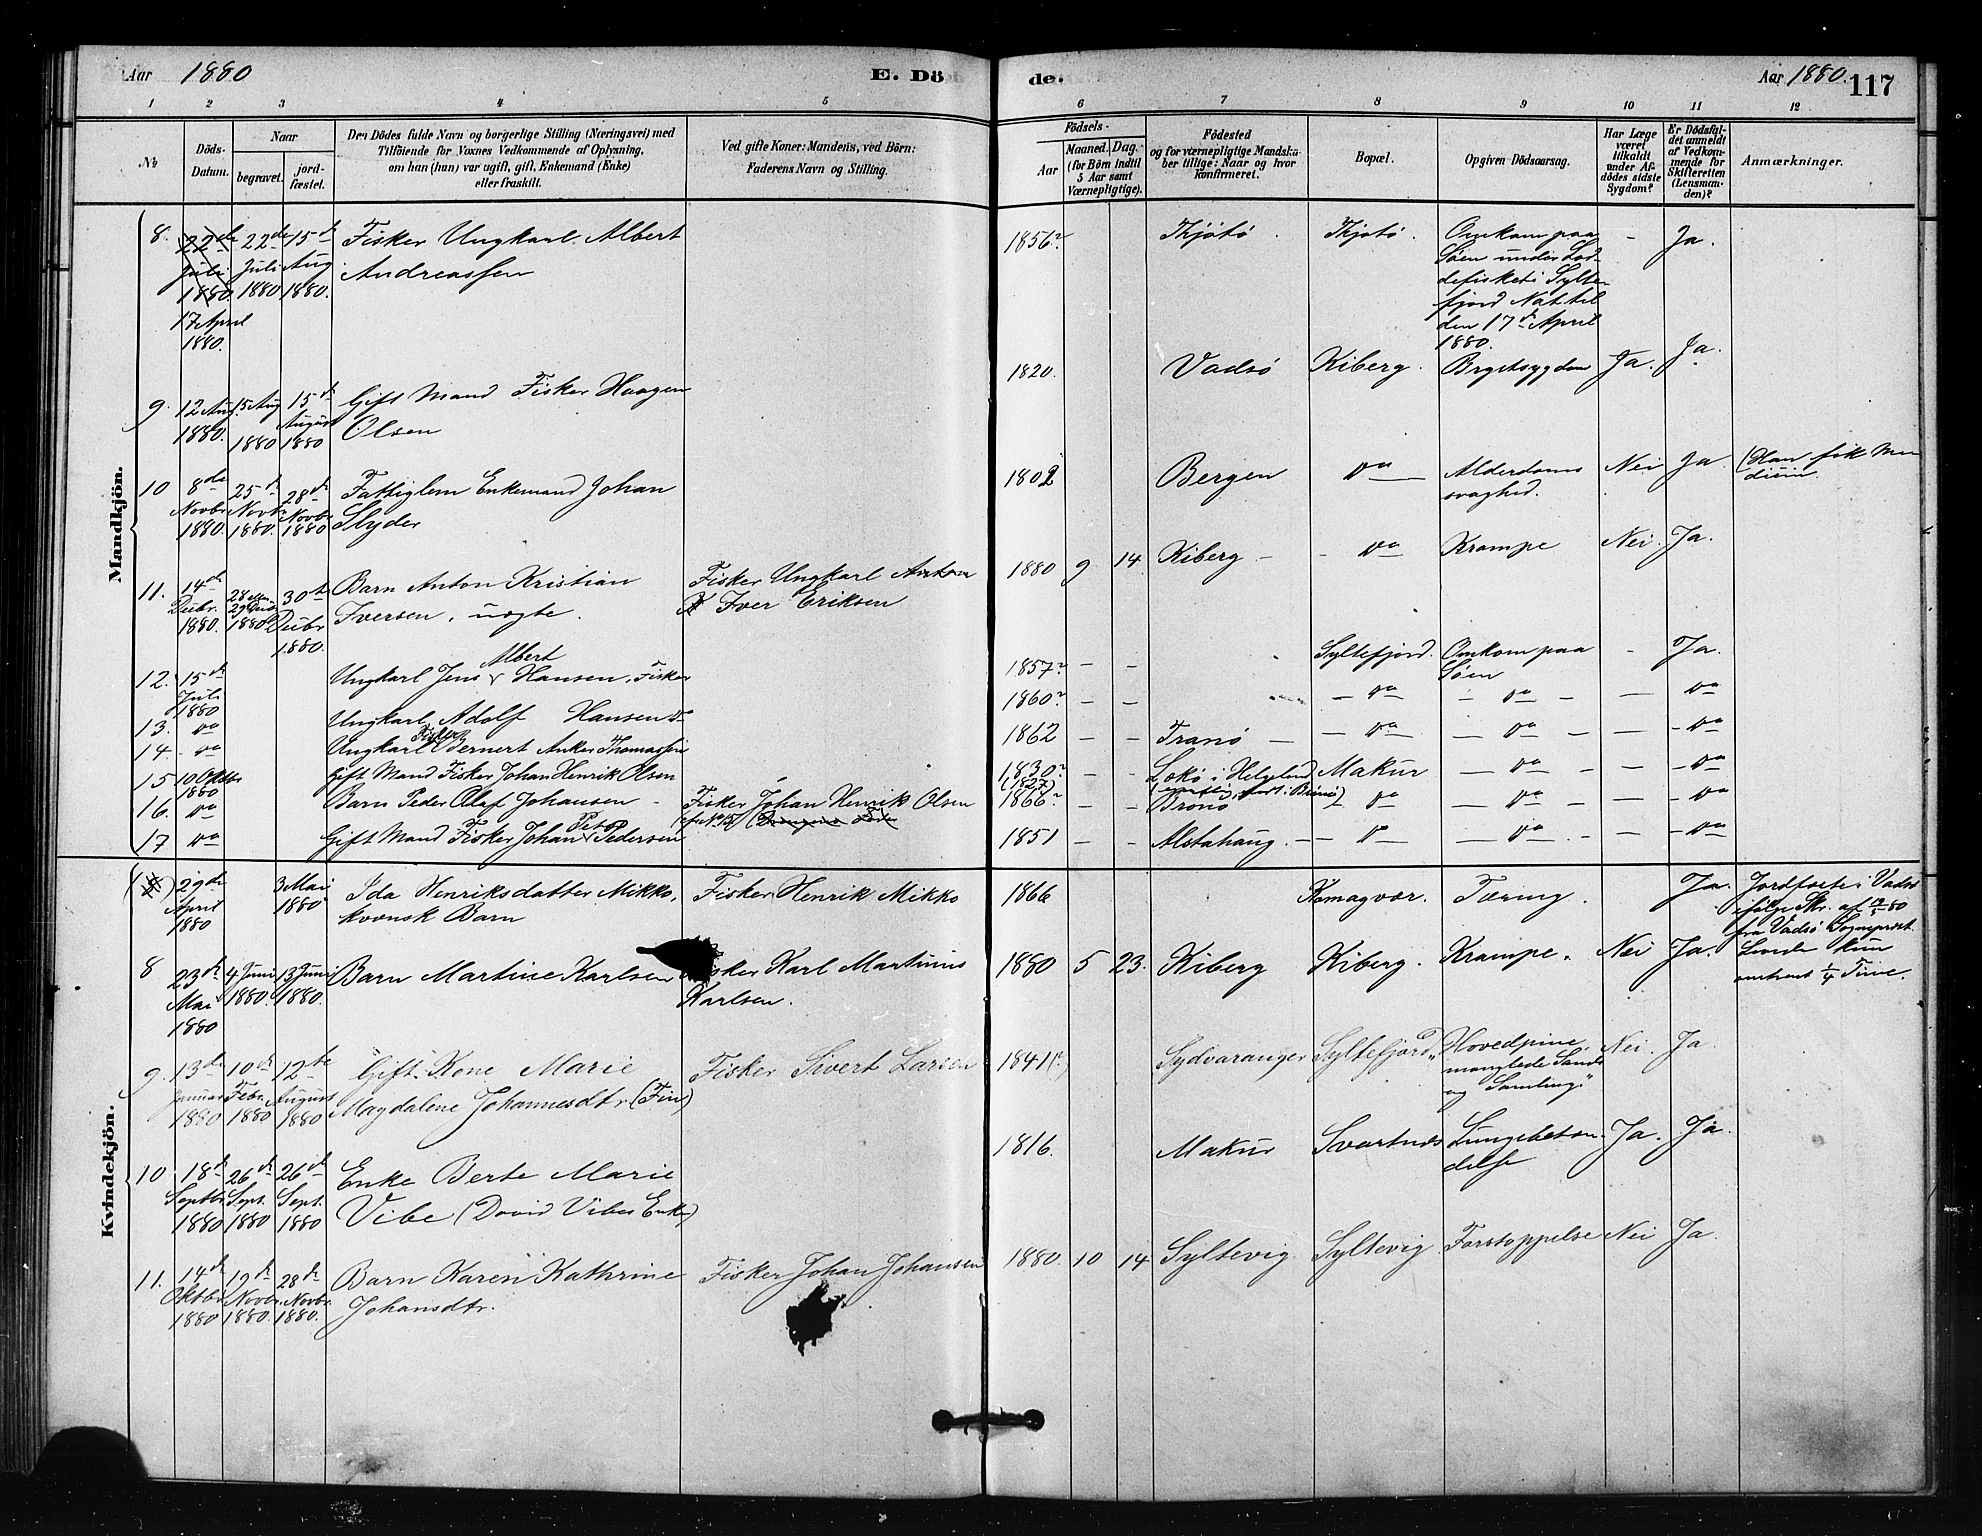 Aar 1880 E. Döde. Aar 1880. 117
1 2 3 4 5 6 7 8 9 10 11 12
№
Döds-Datum.
Naar
begravet. jordfæstet.
Den Dödes fulde Navn og borgerlige Stilling (Næringsvei) med
Tilföiende for Voxnes Vedkommende af Oplysning,
om han (hun) var ugift, gift, Enkemand (Enke)
eller fraskilt.
Ved gifte Koner: Mandens, ved Börn:
Faderens Navn og Stilling.
Födsels-
Aar Maaned. Dag.
(for Börn indtil
5 Aar samt
Værnepligtige).
Födested
og for værnepligtige Mandska-
ber tillige: Naar og hvor
konfirmeret.
Bopæl.
Opgiven Dödsaarsag.
Har Læge
været
tilkaldt
under Af-
dödes sidste
Sygdom?
Er Dödsfal-
det anmeldt
af Vedkom-
mende for
Skifteretten
(Lensman-
den)?
Anmærkninger.
Mandkjön.
8. 22de Juli 1880 17 April 1880. 22de Juli 1880 15de Aug 1880. Fisker Ungkarl Albert
Andreassen
1856? Thjøtø. Thjøtø. Omkom paa - Ja.
Søen under Lod-
defisket i Sylte-
fjord Nat til
den 17de April
1880.
9. 12 Aug. 1880. 15 Aug 1880 15de August 1880 Gift Mand Fisker Haagen
Olsen
1820. Vadsø Kiberg. Brystsygdom Ja. Ja.
10 8de Novbr 1880. 25de Novbr 1880. 28de Novbr 1880 Fattiglem Enkemand Johan
Slyder
1802 Bergen do Alderdoms Nei Ja (Han fik Me-
svaghed. dicin.
11. 14de Decbr. 1880. 28 29 1880 30te Decbr 1880. Barn Anton Kristian Fisker Ungkarl
Iversen, uægte. Iver Eriksen
1880 9 14 Kiberg - - do Krampe Nei. Ja.
12. 15de Juli 1880 Ungkarl Jens Albert Hansen, Fisker
1857? - - Syltefjord. Omkom paa - Ja.
Søen
13. do Ungkarl Adolf Hansen do
1860? - - - do - - do - - do
14 - do Ungkarl Fisker Bernert Anker Thomassen
1862 - - Tranø - - do - - do - - - do
15 10 Oktbr 1880 Gift Mand Fisker Johan Henrik Olsen
1830? (1827) - - Løkø i Helgeland Makur - do - - - do
16. do Barn Peder Olaf Johansen - Fisker Johan Henrik Olsen
(cfr. No 15)
1866? - - Brønø - do - do - - - do
17 do Gift Mand Fisker Johan Peter Pedersen
1851 - - Alstahaug. - - do - do - - - do
Kvindekjön.
29de April 1880 3 Mai 1880 Ida Henriksdatter Mikko, Fisker Henrik Mikko
kvænsk Barn
1866 Komagvær. Tæring. Ja. Jordfæstet i Vadsø
ifølge Skr. af 19/5 80
fra Vadsø Sogneprest.
8 23de Mai 1880 4 Juni 1880. 13 Juni 1880. Barn Martine Karlsen Fisker Karl Martinus
Karlsen.
1880 5 23. Kiberg Kiberg. Krampe. Nei Ja. Levede kun
omtrent 1/4 Time.
9. 13de Januar 1880 10de Febr. 1880 12te August 1880 Gift Kone Marie Fisker Sivert Larsen
Magdalene Johannesdtr (Fin)
1841(?) Sydvaranger Syltefjord" Hovedpine, Nei. Ja.
manglede Sands
og Samling"
10 18de Septbr 1880 26de Sept. 1880 26de Sept. 1880 Enke Berte Marie
Vibe (David Vibes Enke)
1816. Makur Svartnæs Lungebetæn- Ja. Ja.
delse
11. 14de Oktbr 1880 19de Novbr. 1880. 28de Novbr. 1880. Barn Karen Kathrine Fisker Johan Johansen
Johansdtr.
1880. 10 14 Syltevig. Syltevig. Forstoppelse Nei Ja.